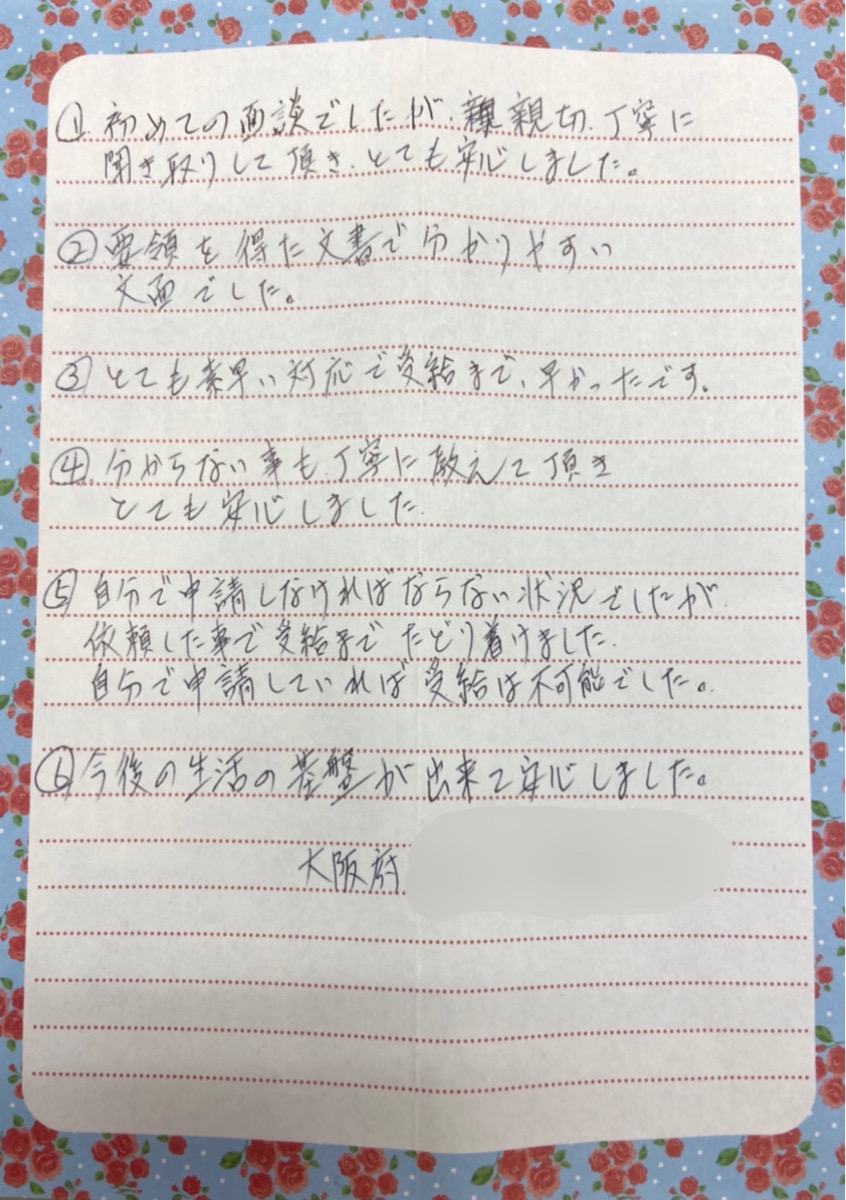 ① 初めての面談でしたが、親切、丁寧に
聞き取りして頂き、とても安心しました。
② 要領を得た文書で分かりやすい
文面でした。
③ とても素早い対応で受給まで、早かったです。
④ 分からない事も、丁寧に教えて頂き
とても安心しました。
⑤ 自分で申請しなければならない状況でしたが、
依頼した事で受給までたどり着けました。
自分で申請していれば受給は不可能でした。
⑥ 今後の生活の基盤が出来て安心しました。
大阪府